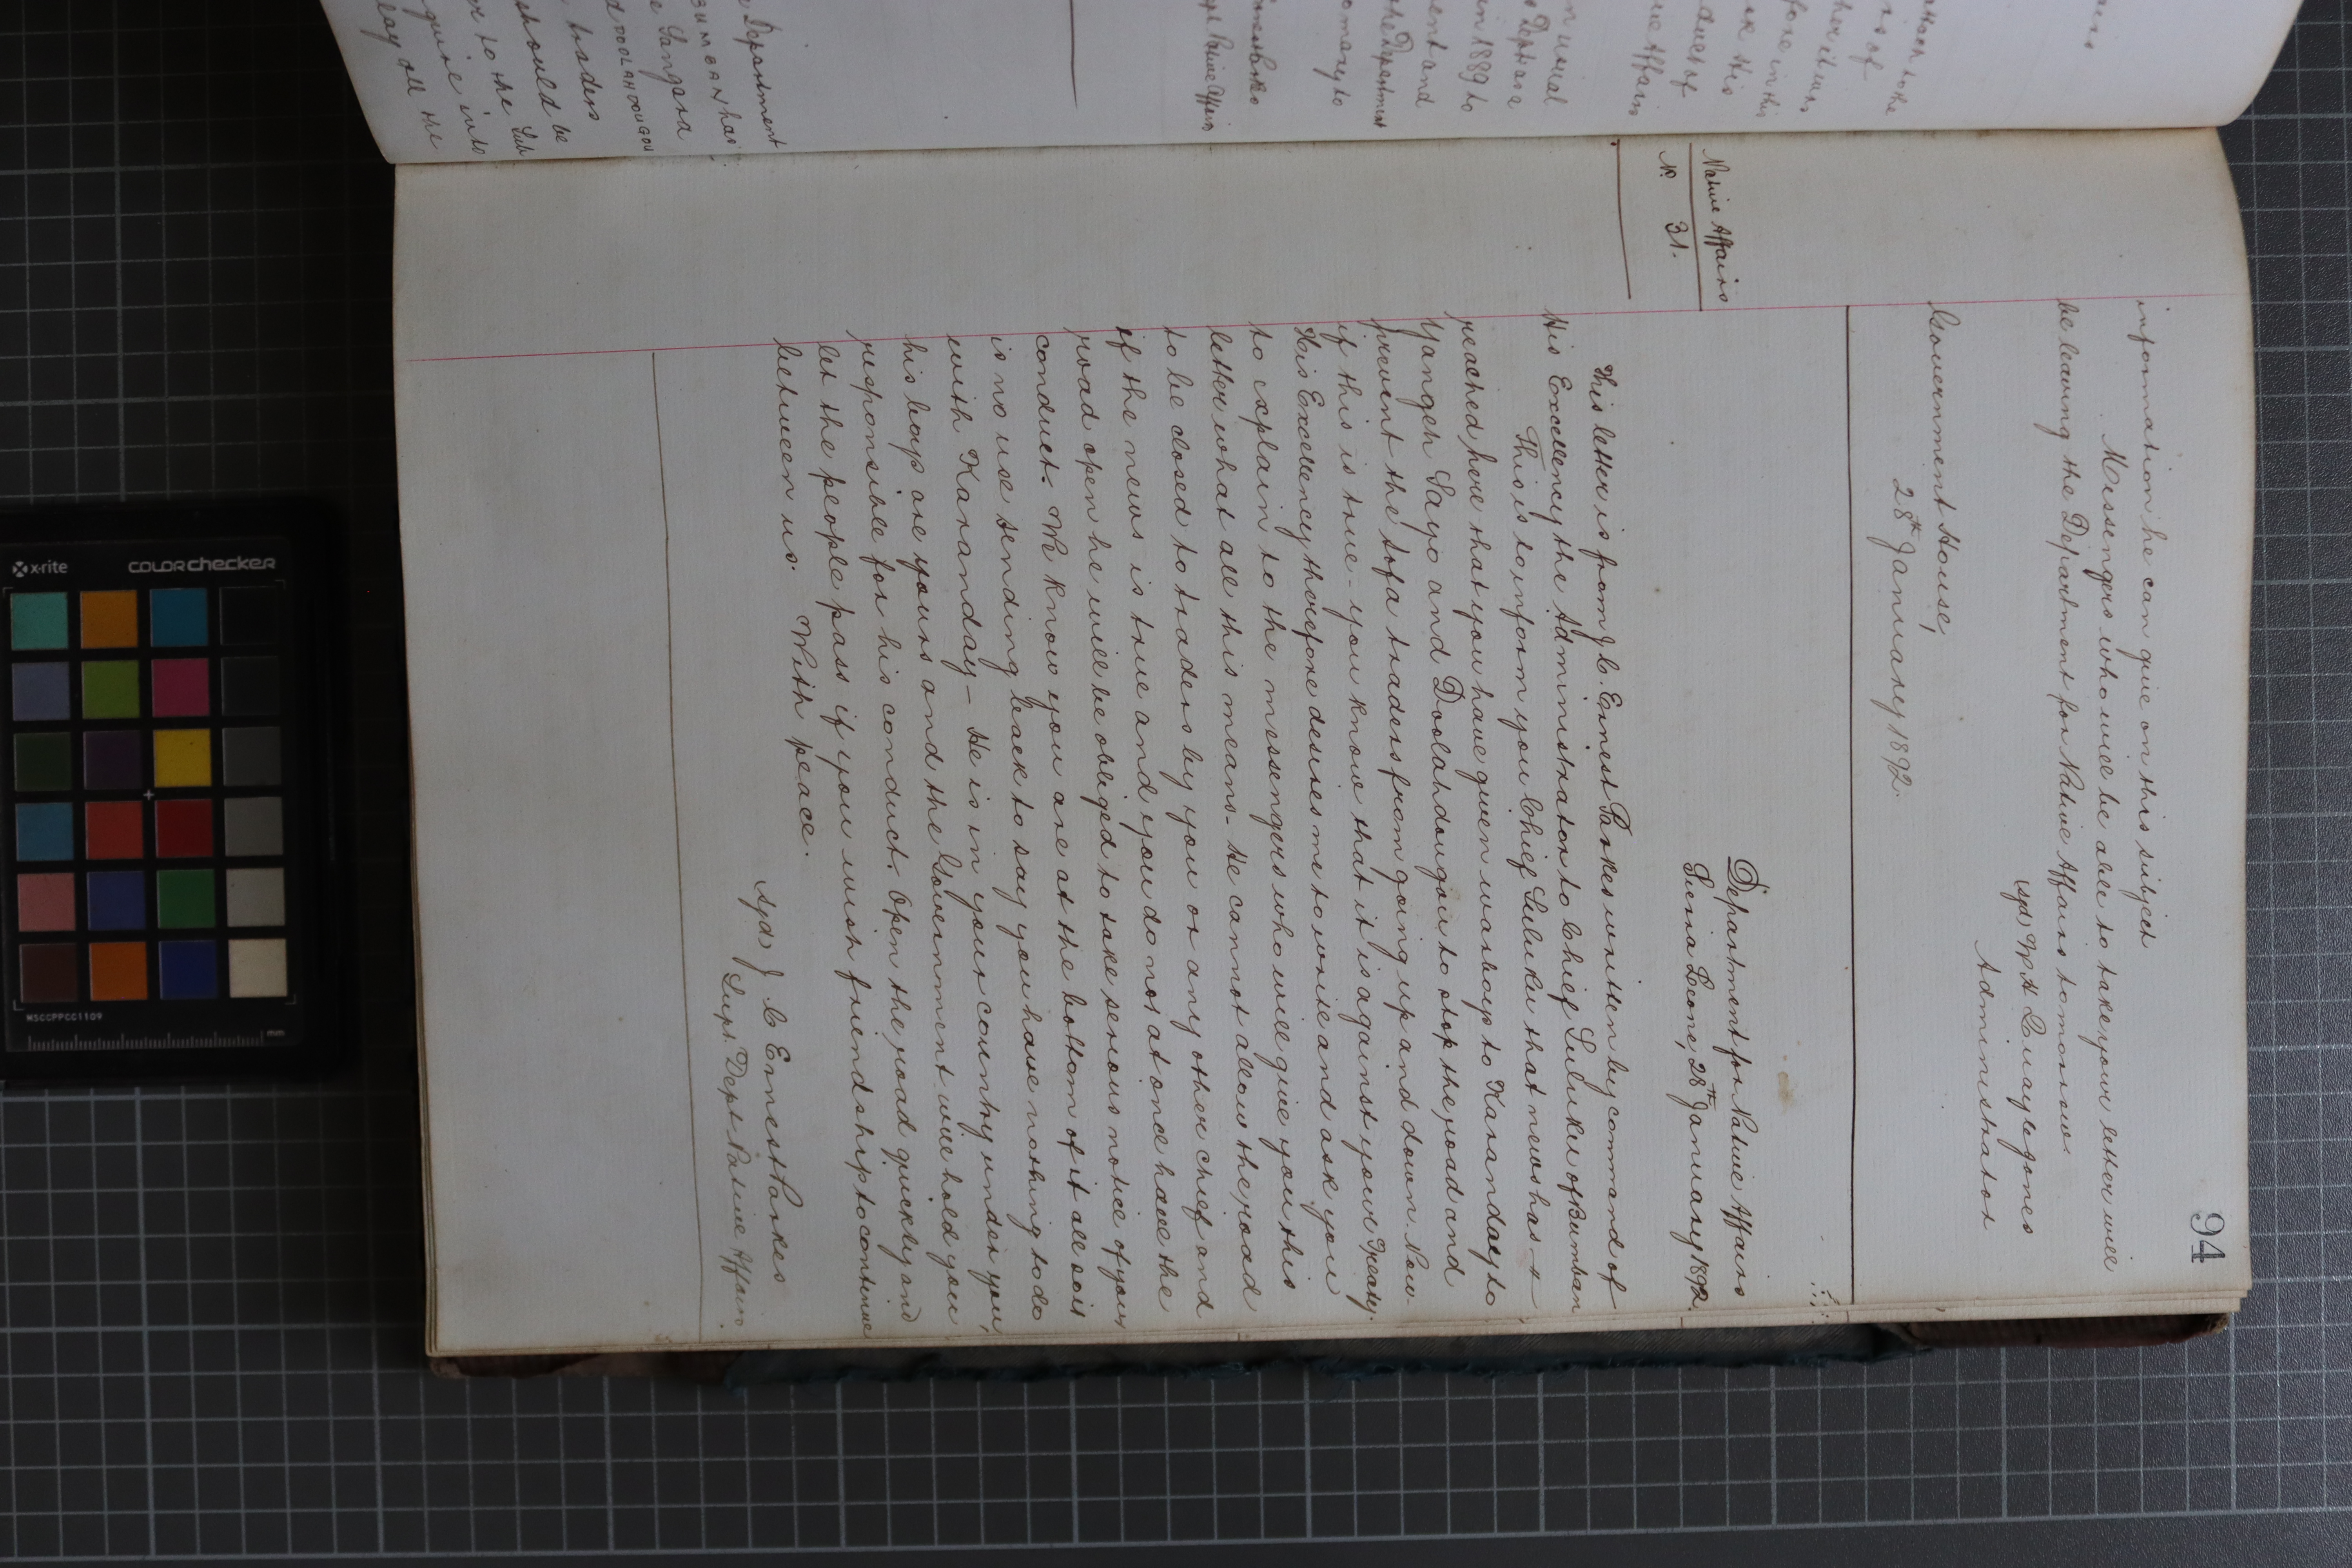 94
information he can give on this subject
Messengers who will be able to take your letter will
be leaving the Department for Native Affairs tomorrow
(sgd) W H Quayle Jones
Administrator
Government House,
28th January 1892.
Department for Native Affairs
Sierra Leone, 28th January 1892.
Native Affairs
No. 31.
This letter is from J. C. Ernest Parkes written by command of
His Excellency the Administrator to Chief Suluku of Bumban
This is to inform you Chief Suluku that news has
reached here that you have given warboys to Karanday to
Yangeh Sayo and Doolahdougou to stop the road and
prevent the Sofa traders from going up and down. Now
if this is true - you know that it is against your Treaty.
His Excellency therefore desires me to write and ask you
to explain to the messengers who will give you this
letter what all this means - He cannot allow the road
to be closed to traders by you or any other chief and
if the news is true and you do not at once have the
road open he will be obliged to take serious notice of your
conduct. We know you are at the bottom of it all so it
is no use sending back to say you have nothing to do
with Karanday - He is in your country under you,
his boys are yours and the Government will hold you
responsible for his conduct. Open the road quickly and
let the people pass if you wish friendship to continue
between us. With peace.
(sgd) J C Ernest Parkes
Supt. Dept Native Affairs.
Department
BUMBAN has
Sangara
DOOLAHDOUGOU
traders
should be
to the Sub
into
all the
in 1889 to
the Department
Native Affairs
x-rite
colorchecker
MSCCPPCC1109
mm